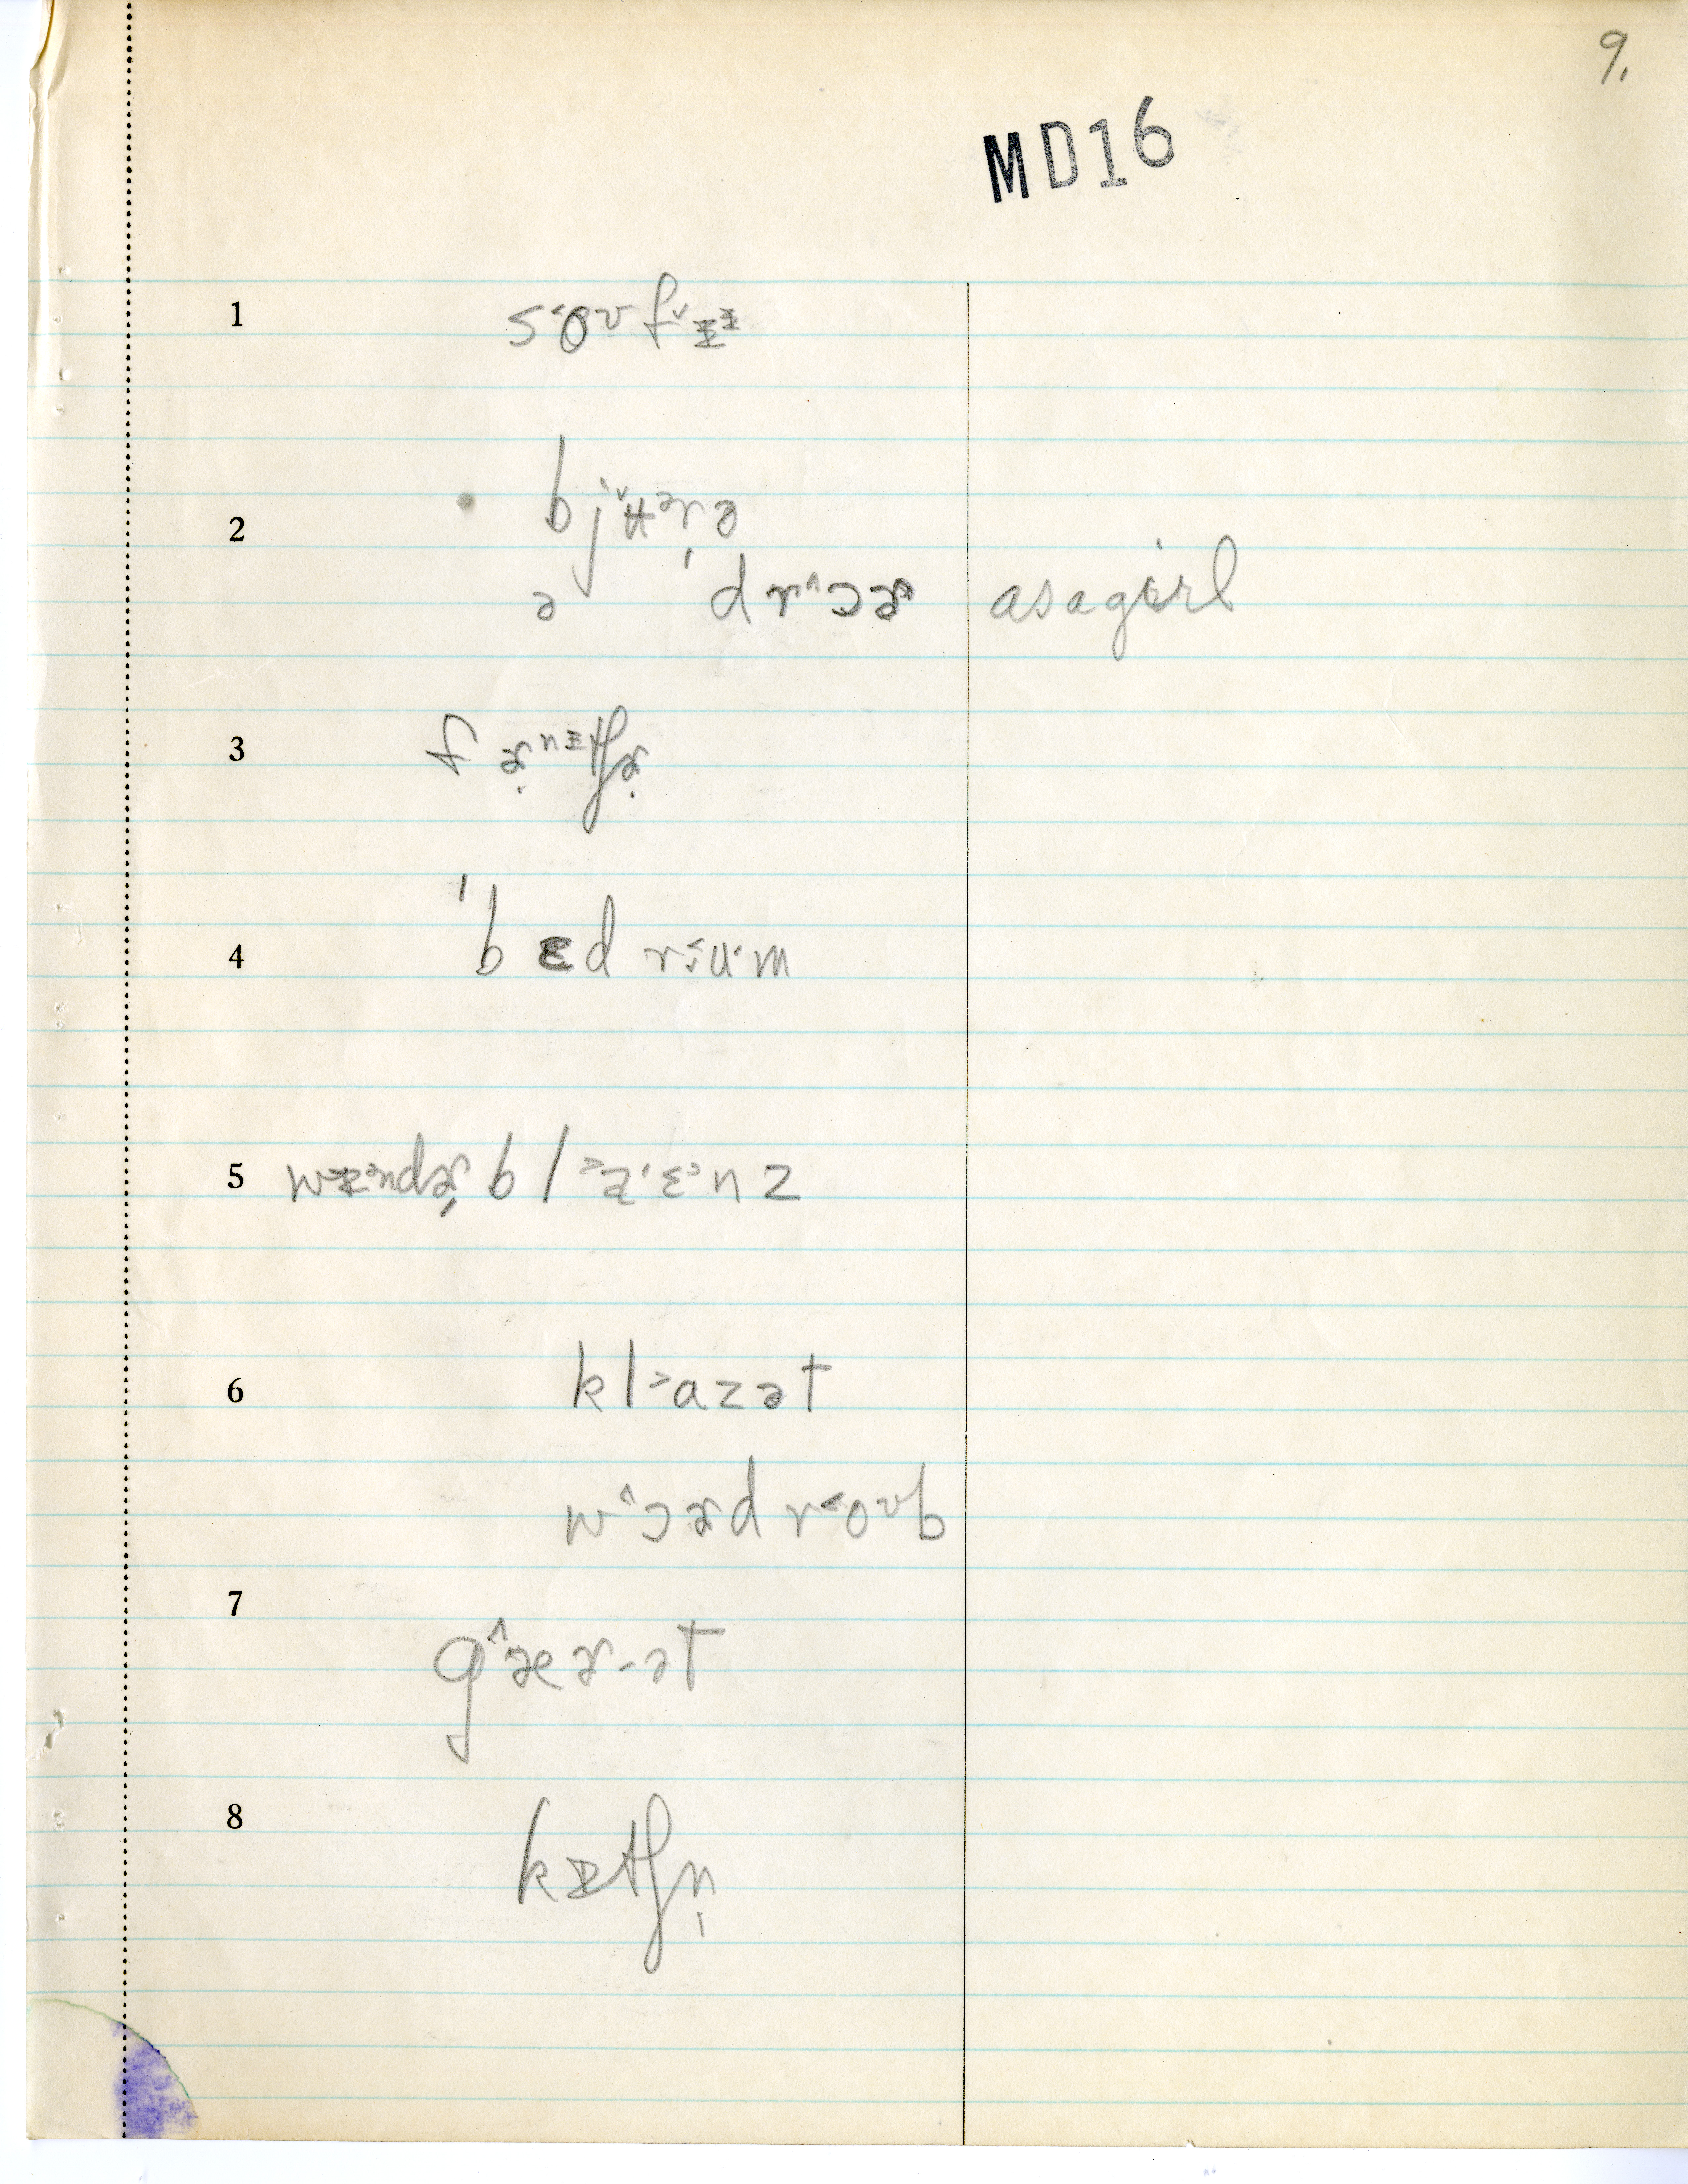 9.
MD16
1 s˂oᶷfᵛɪᶤ
2 bjᵛʉᵊrə
ə ˈdr^ɔɚ asagirl
3 fɚnɪtʃɚ
4 ˈbɛdr˂u·m
5 wɪndɚbl˃aɪ·ɛ˃nz
6 kl˃azət
w^ɔɚdr˂oᶷb
7 g^æɚ-ət
8 kɪtʃn̩